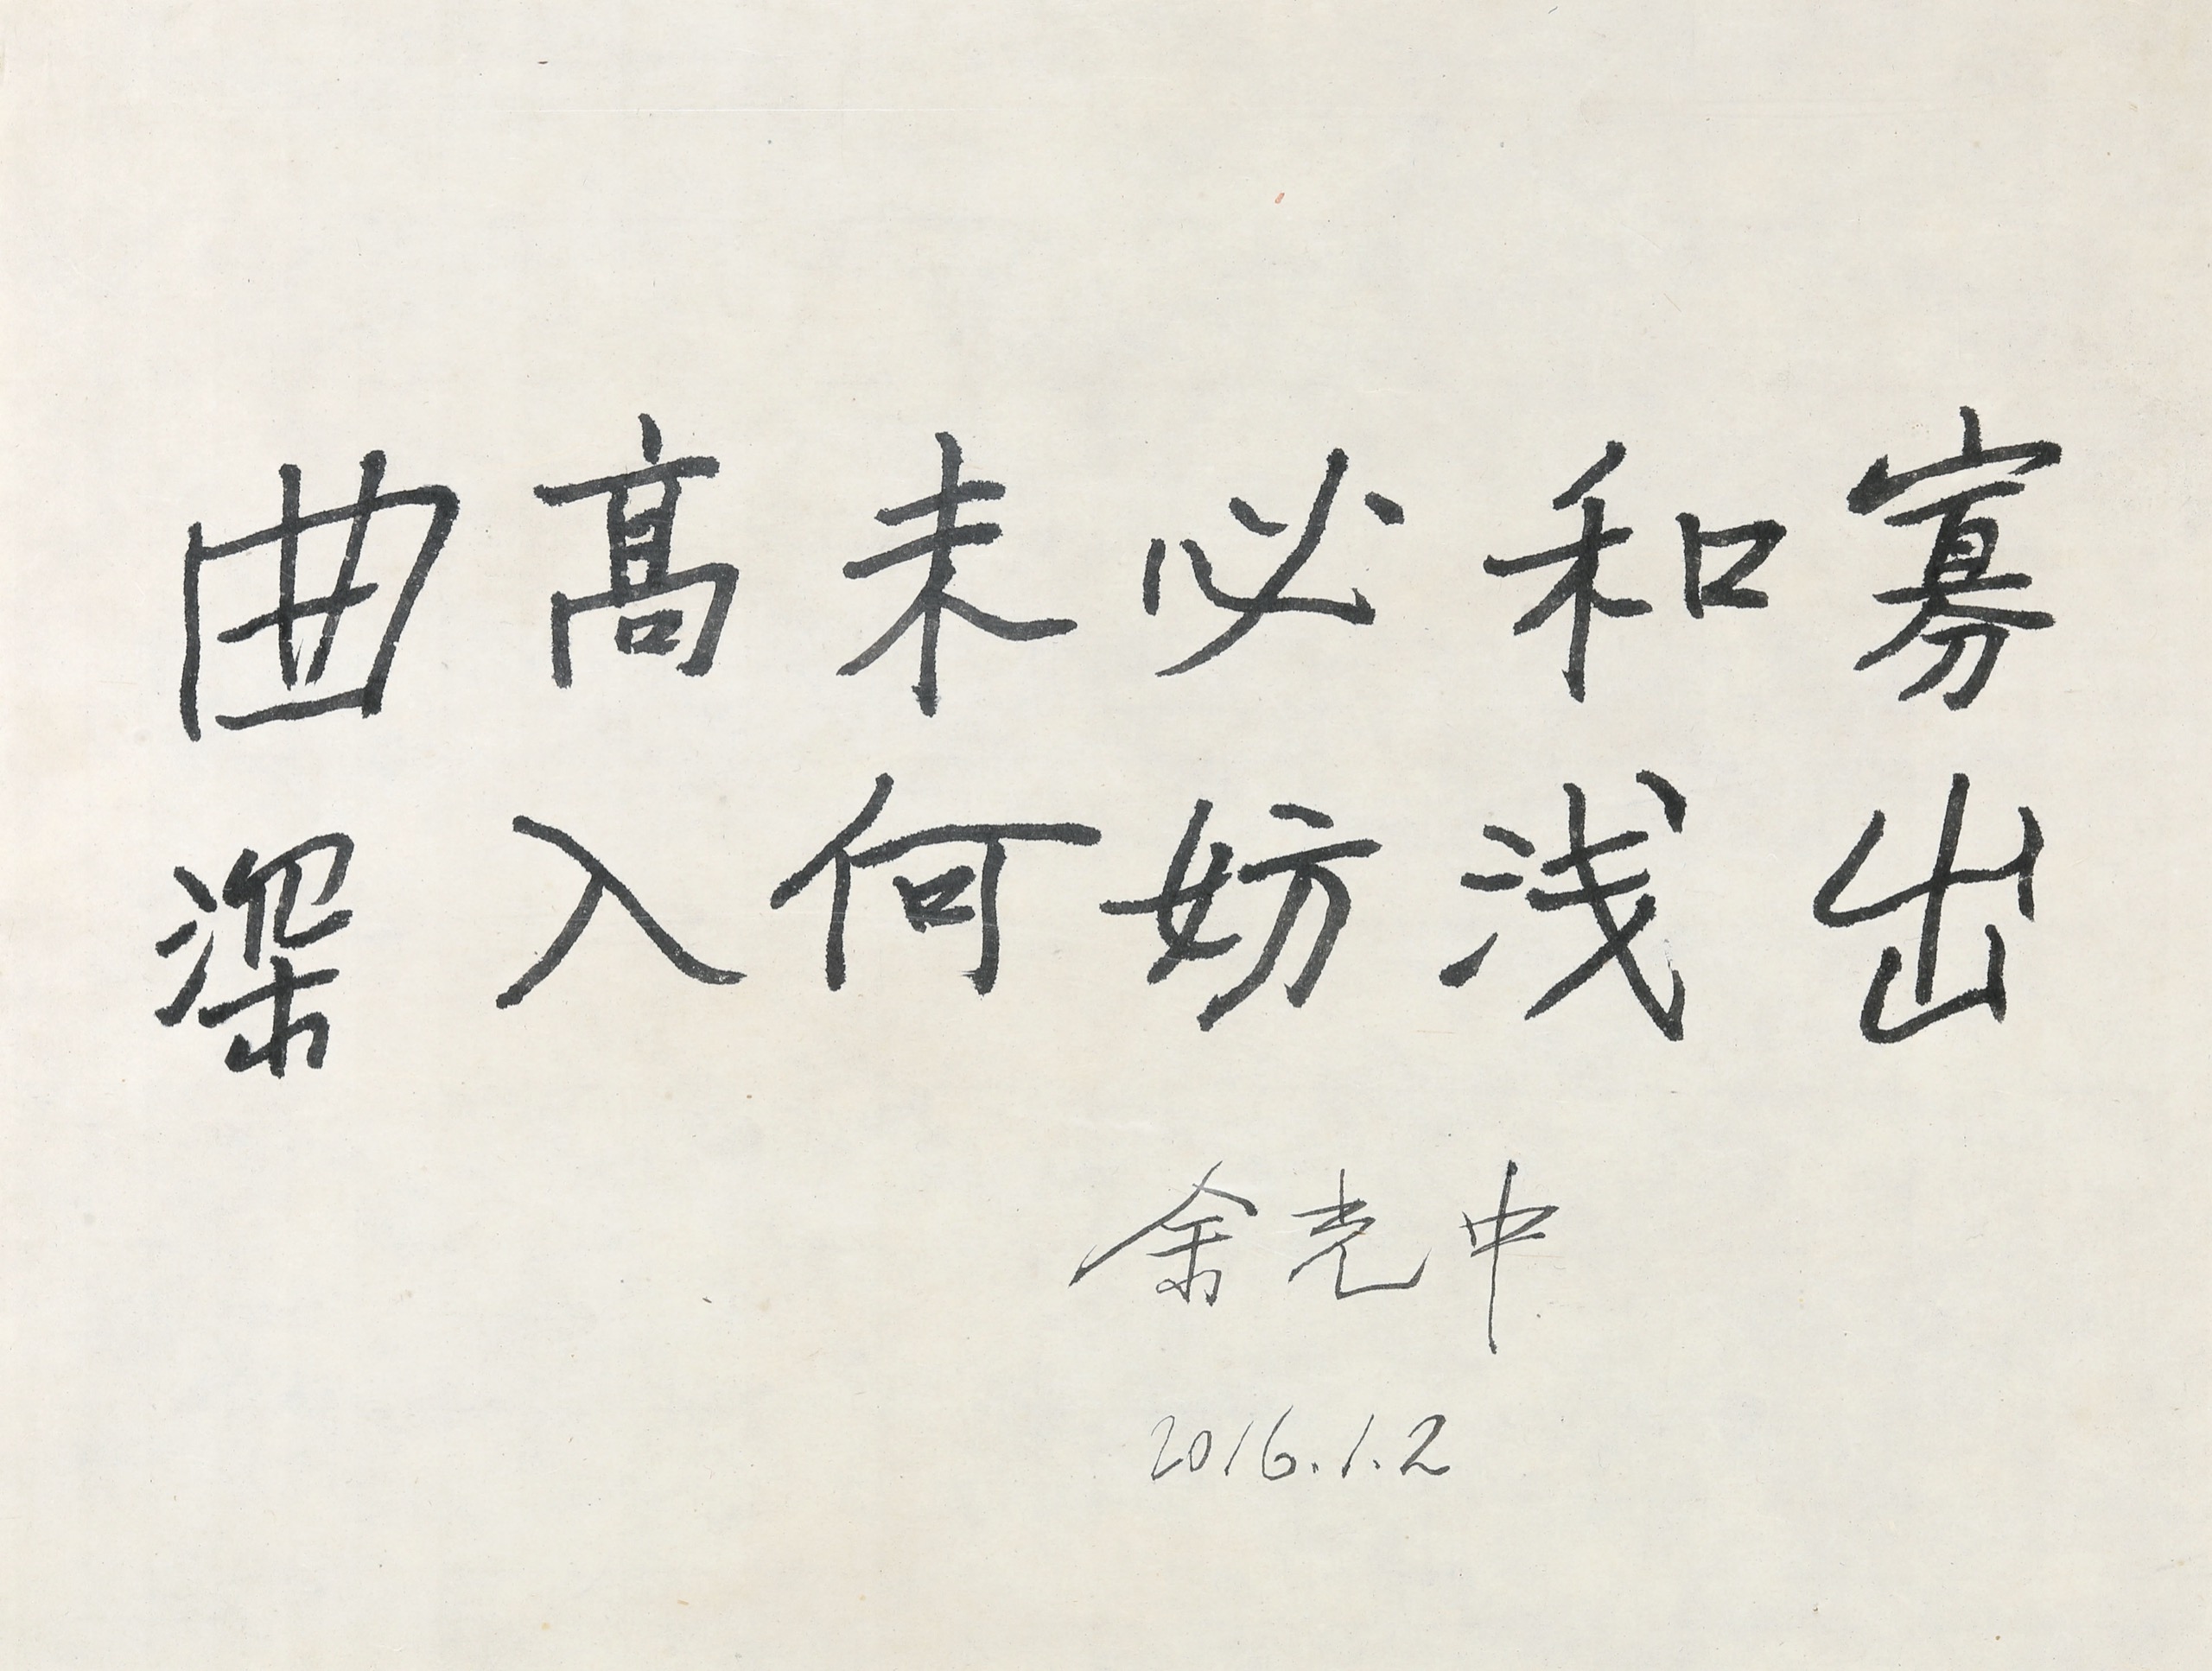 曲高未必和寡
深入何妨浅出
余光中
2016.1.2